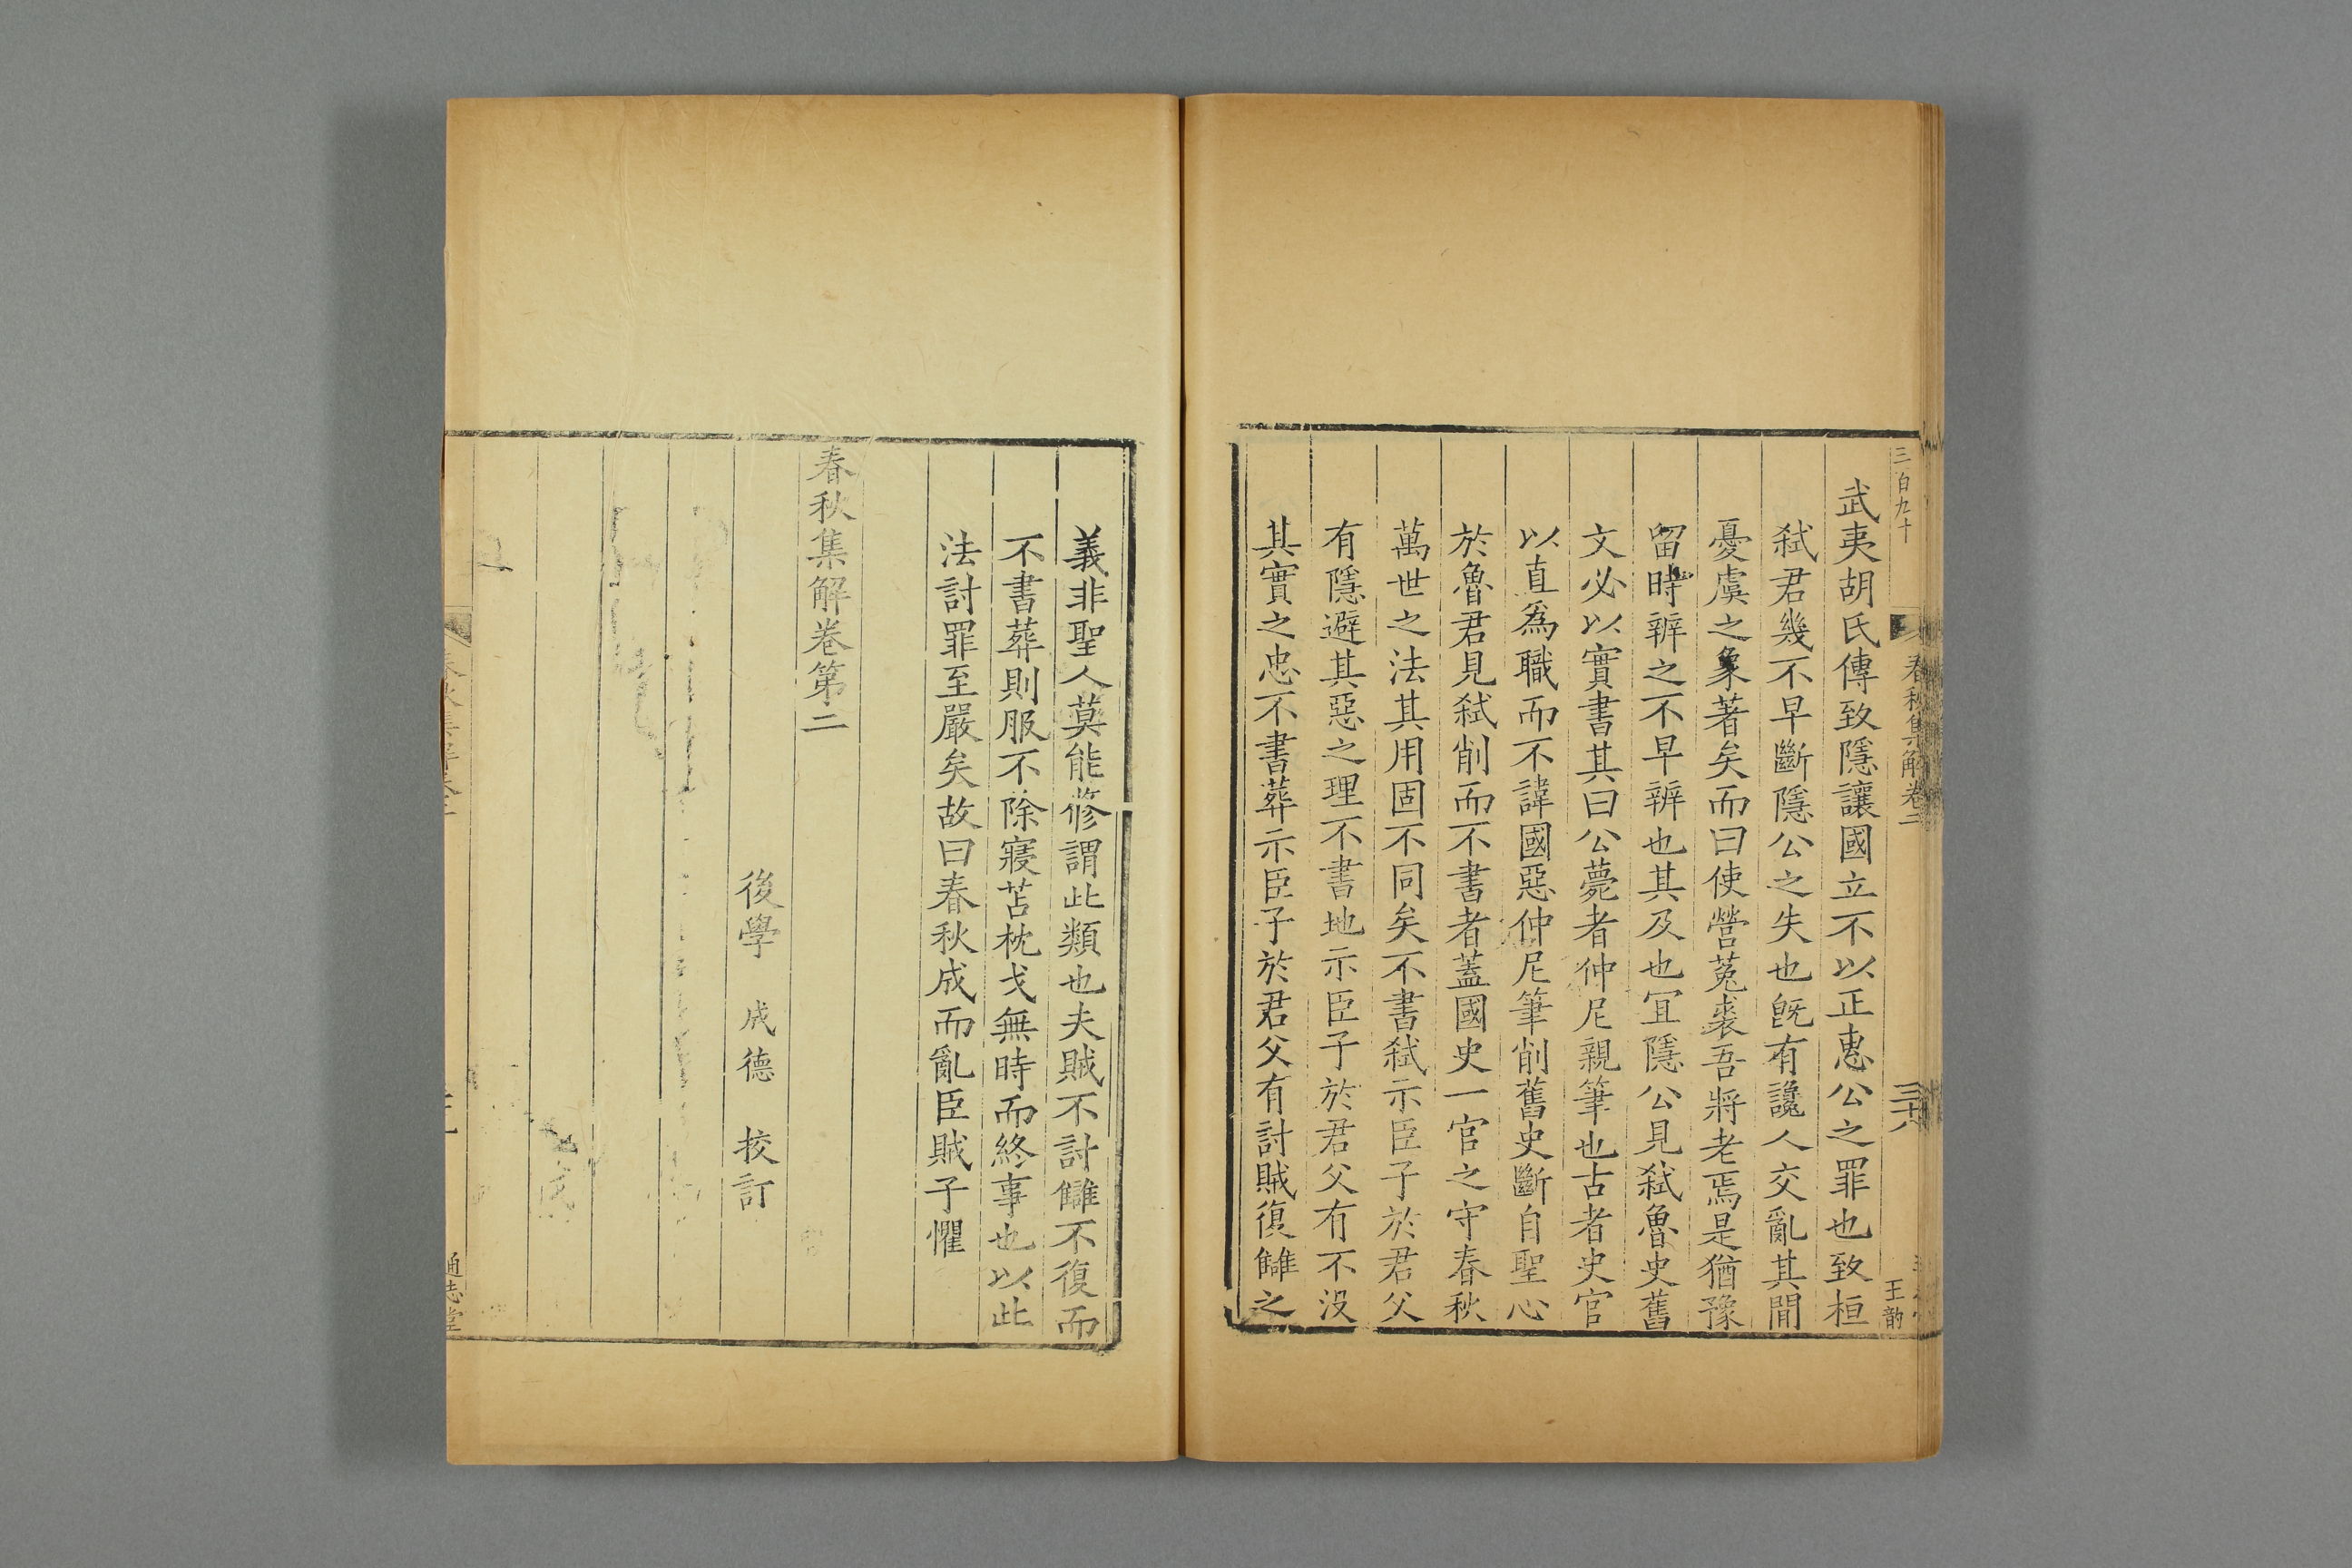 三百九十
武夷胡氏傳致隱讓國立不以正惠公之罪也致桓
弑君幾不早斷隱公之失也旣有讒人交亂其間
憂虞之象著矣而曰使營菟裘吾將老焉是猶豫
留時辨之不早辨也其及也宜隱公見弑魯史舊
文必以實書其曰公薨者仲尼親筆也古者史官
以直爲職而不諱國惡仲尼筆削舊史斷自聖心
於魯君見弑削而不書者蓋國史一官之守春秋
萬世之法其用固不同矣不書弑示臣子於君父
有隱避其惡之理不書地示臣子於君父有不没
其實之忠不書葬示臣子於君父有討賊復讎之
春秋集解卷二
三十八
王韵
義非聖人莫能修謂此類也夫賊不討讎不復而
不書葬則服不除寢苫枕戈無時而終事也以此
法討罪至嚴矣故曰春秋成而亂臣賊子懼
春秋集解卷第二
後學 成德 校訂
通志堂